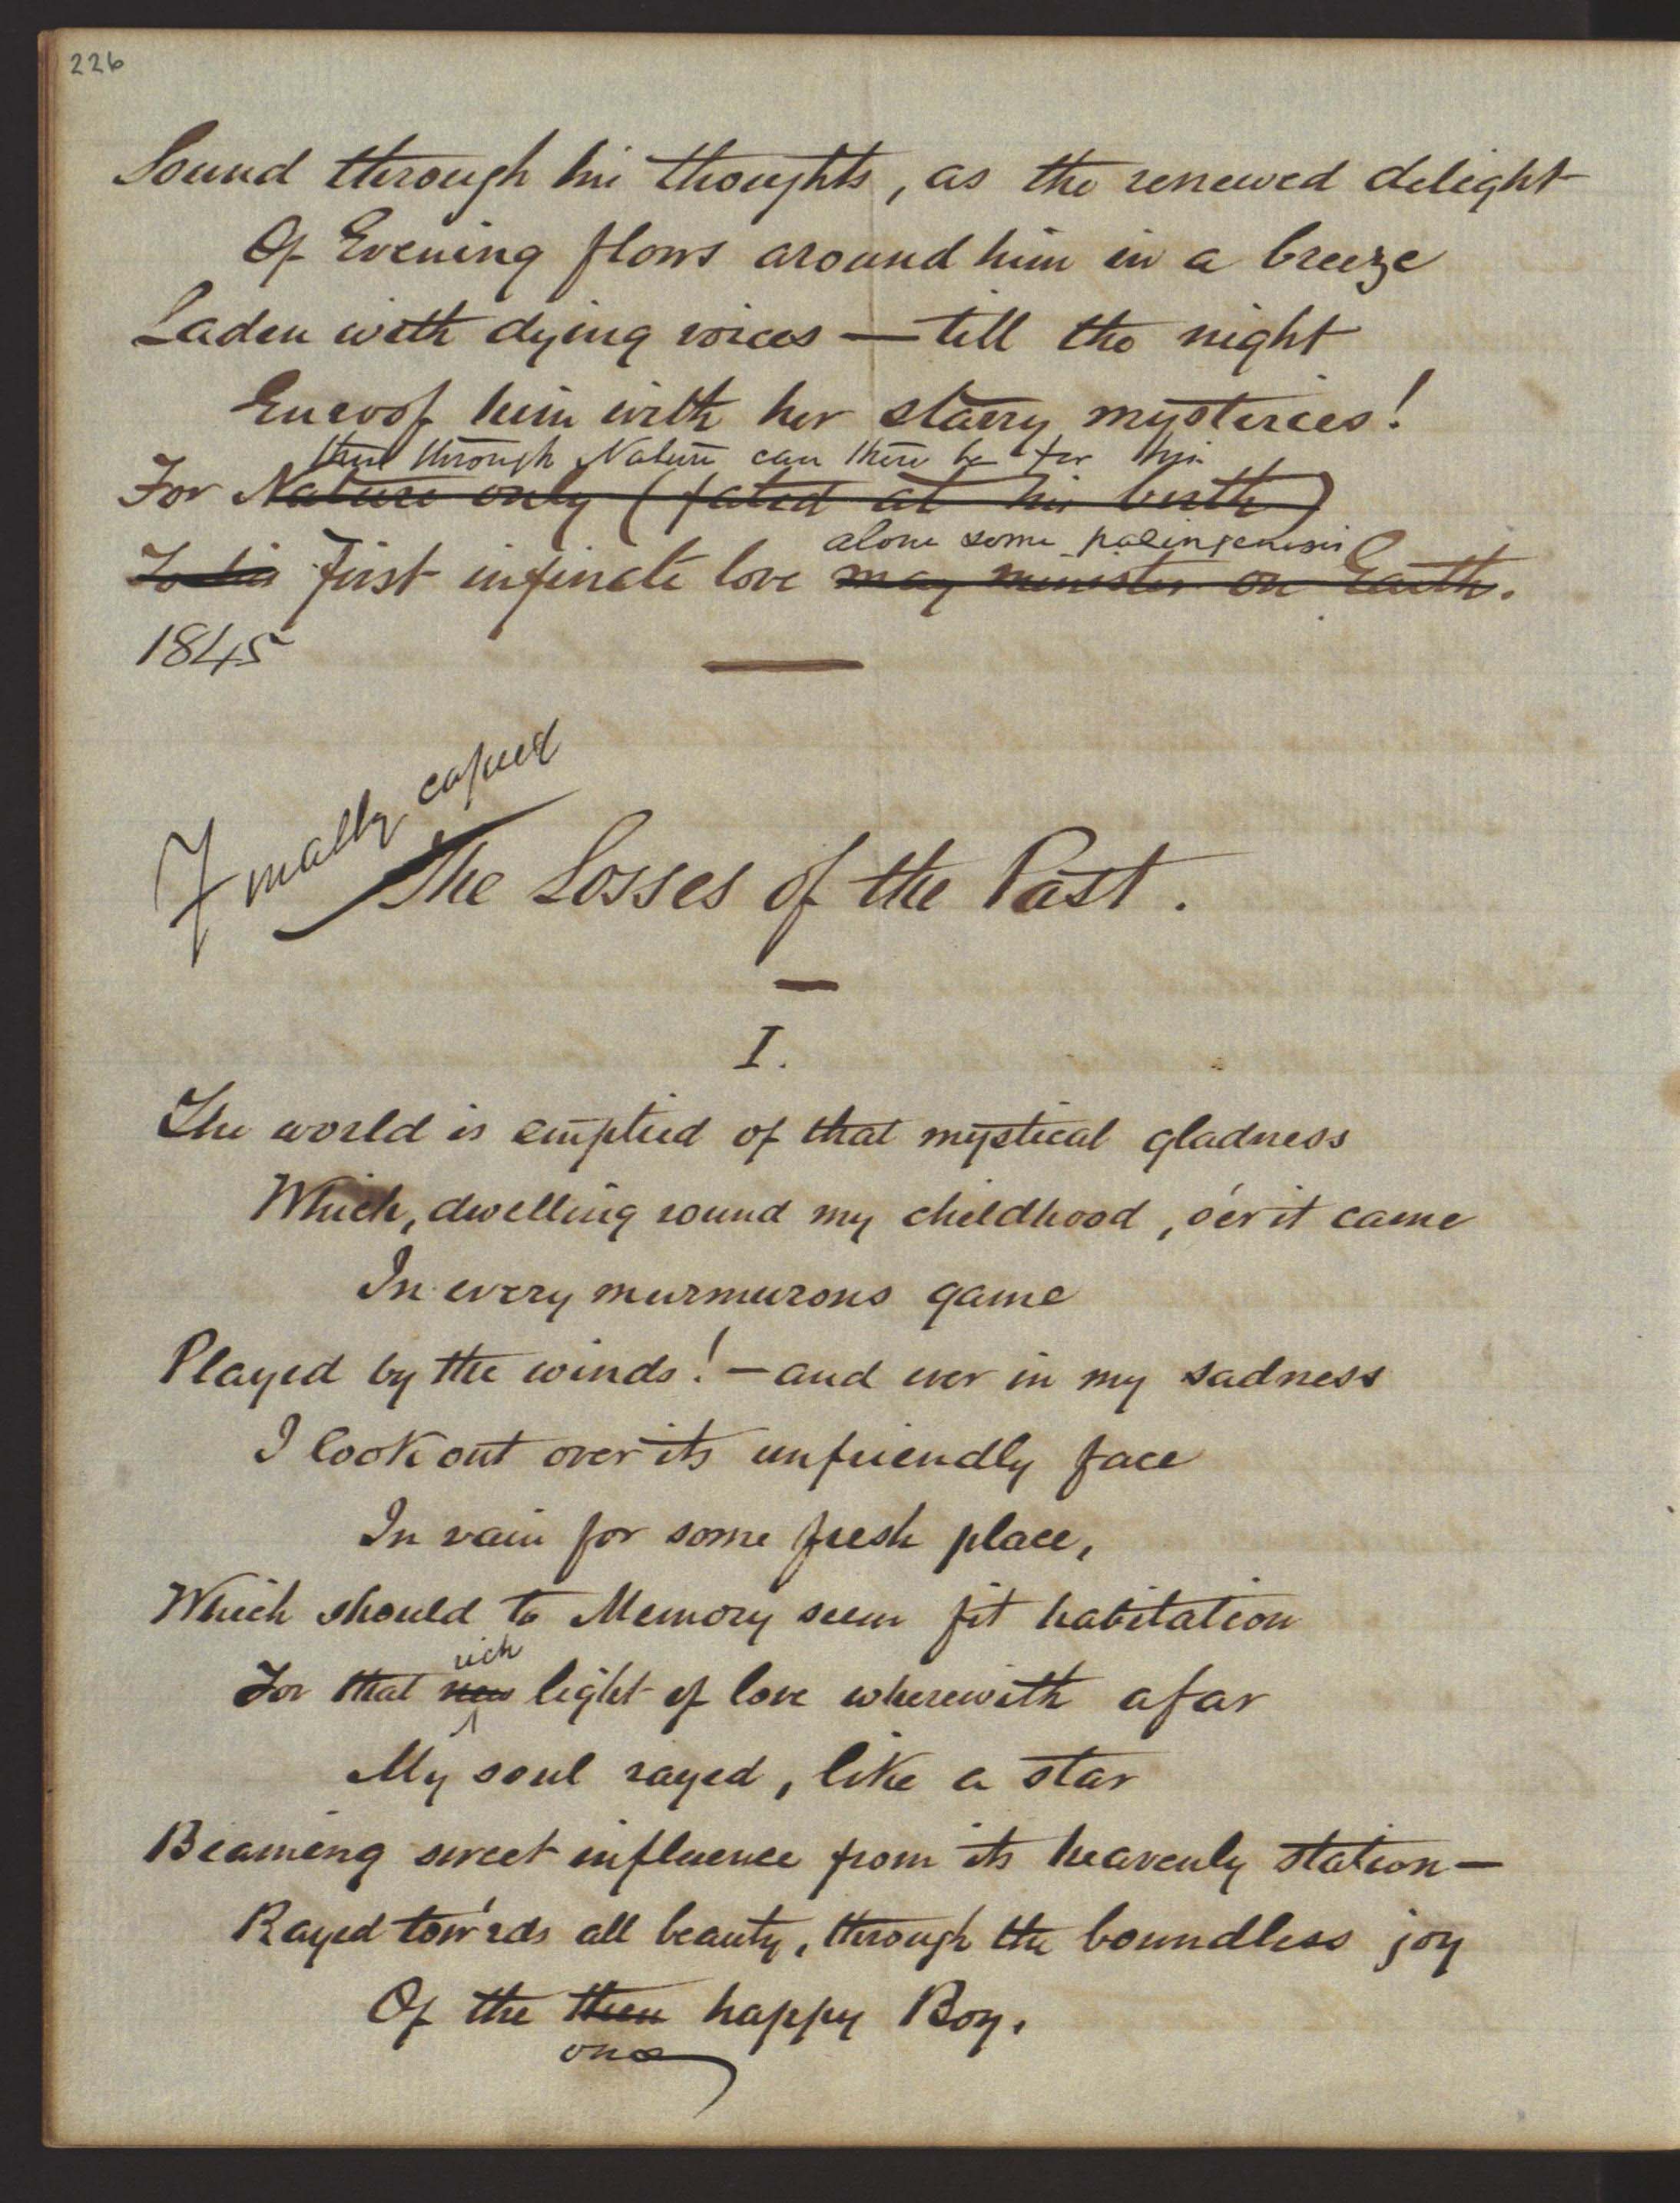 226
Sound through his thoughts, as the renewed delight
Of Evening flows around him in a breeze
Laden with dying voices — till the night
Enroof him with her starry mysteries!
thus through Nature can there be for him
For Nature only (fated at his birth)
alone some palingenesis
To his first infinite love may minister on Earth.
1845
Finally copied
The Losses of the Past.
I.
The world is emptied of that mystical gladness
Which, dwelling round my childhood, o'er it came
In every murmurous game
Played by the winds! — and ever in my sadness
I look out over its unfriendly face
In vain for some fresh place,
Which should to Memory seem fit habitation
rich
For that new light of love wherewith afar
My soul rayed, like a star
Beaming sweet influence from its heavenly station —
Rayed tow'rds all beauty, through the boundless joy
Of the then happy Boy.
once